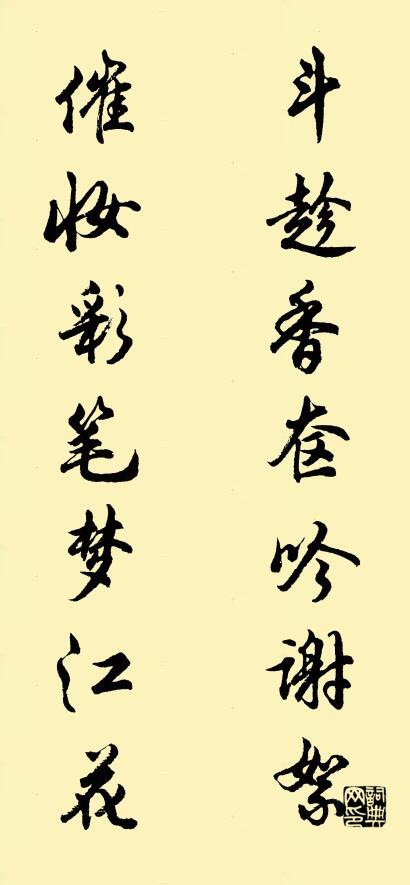 斗趁香奁吟谢絮
催妆彩笔梦江花
词典网印